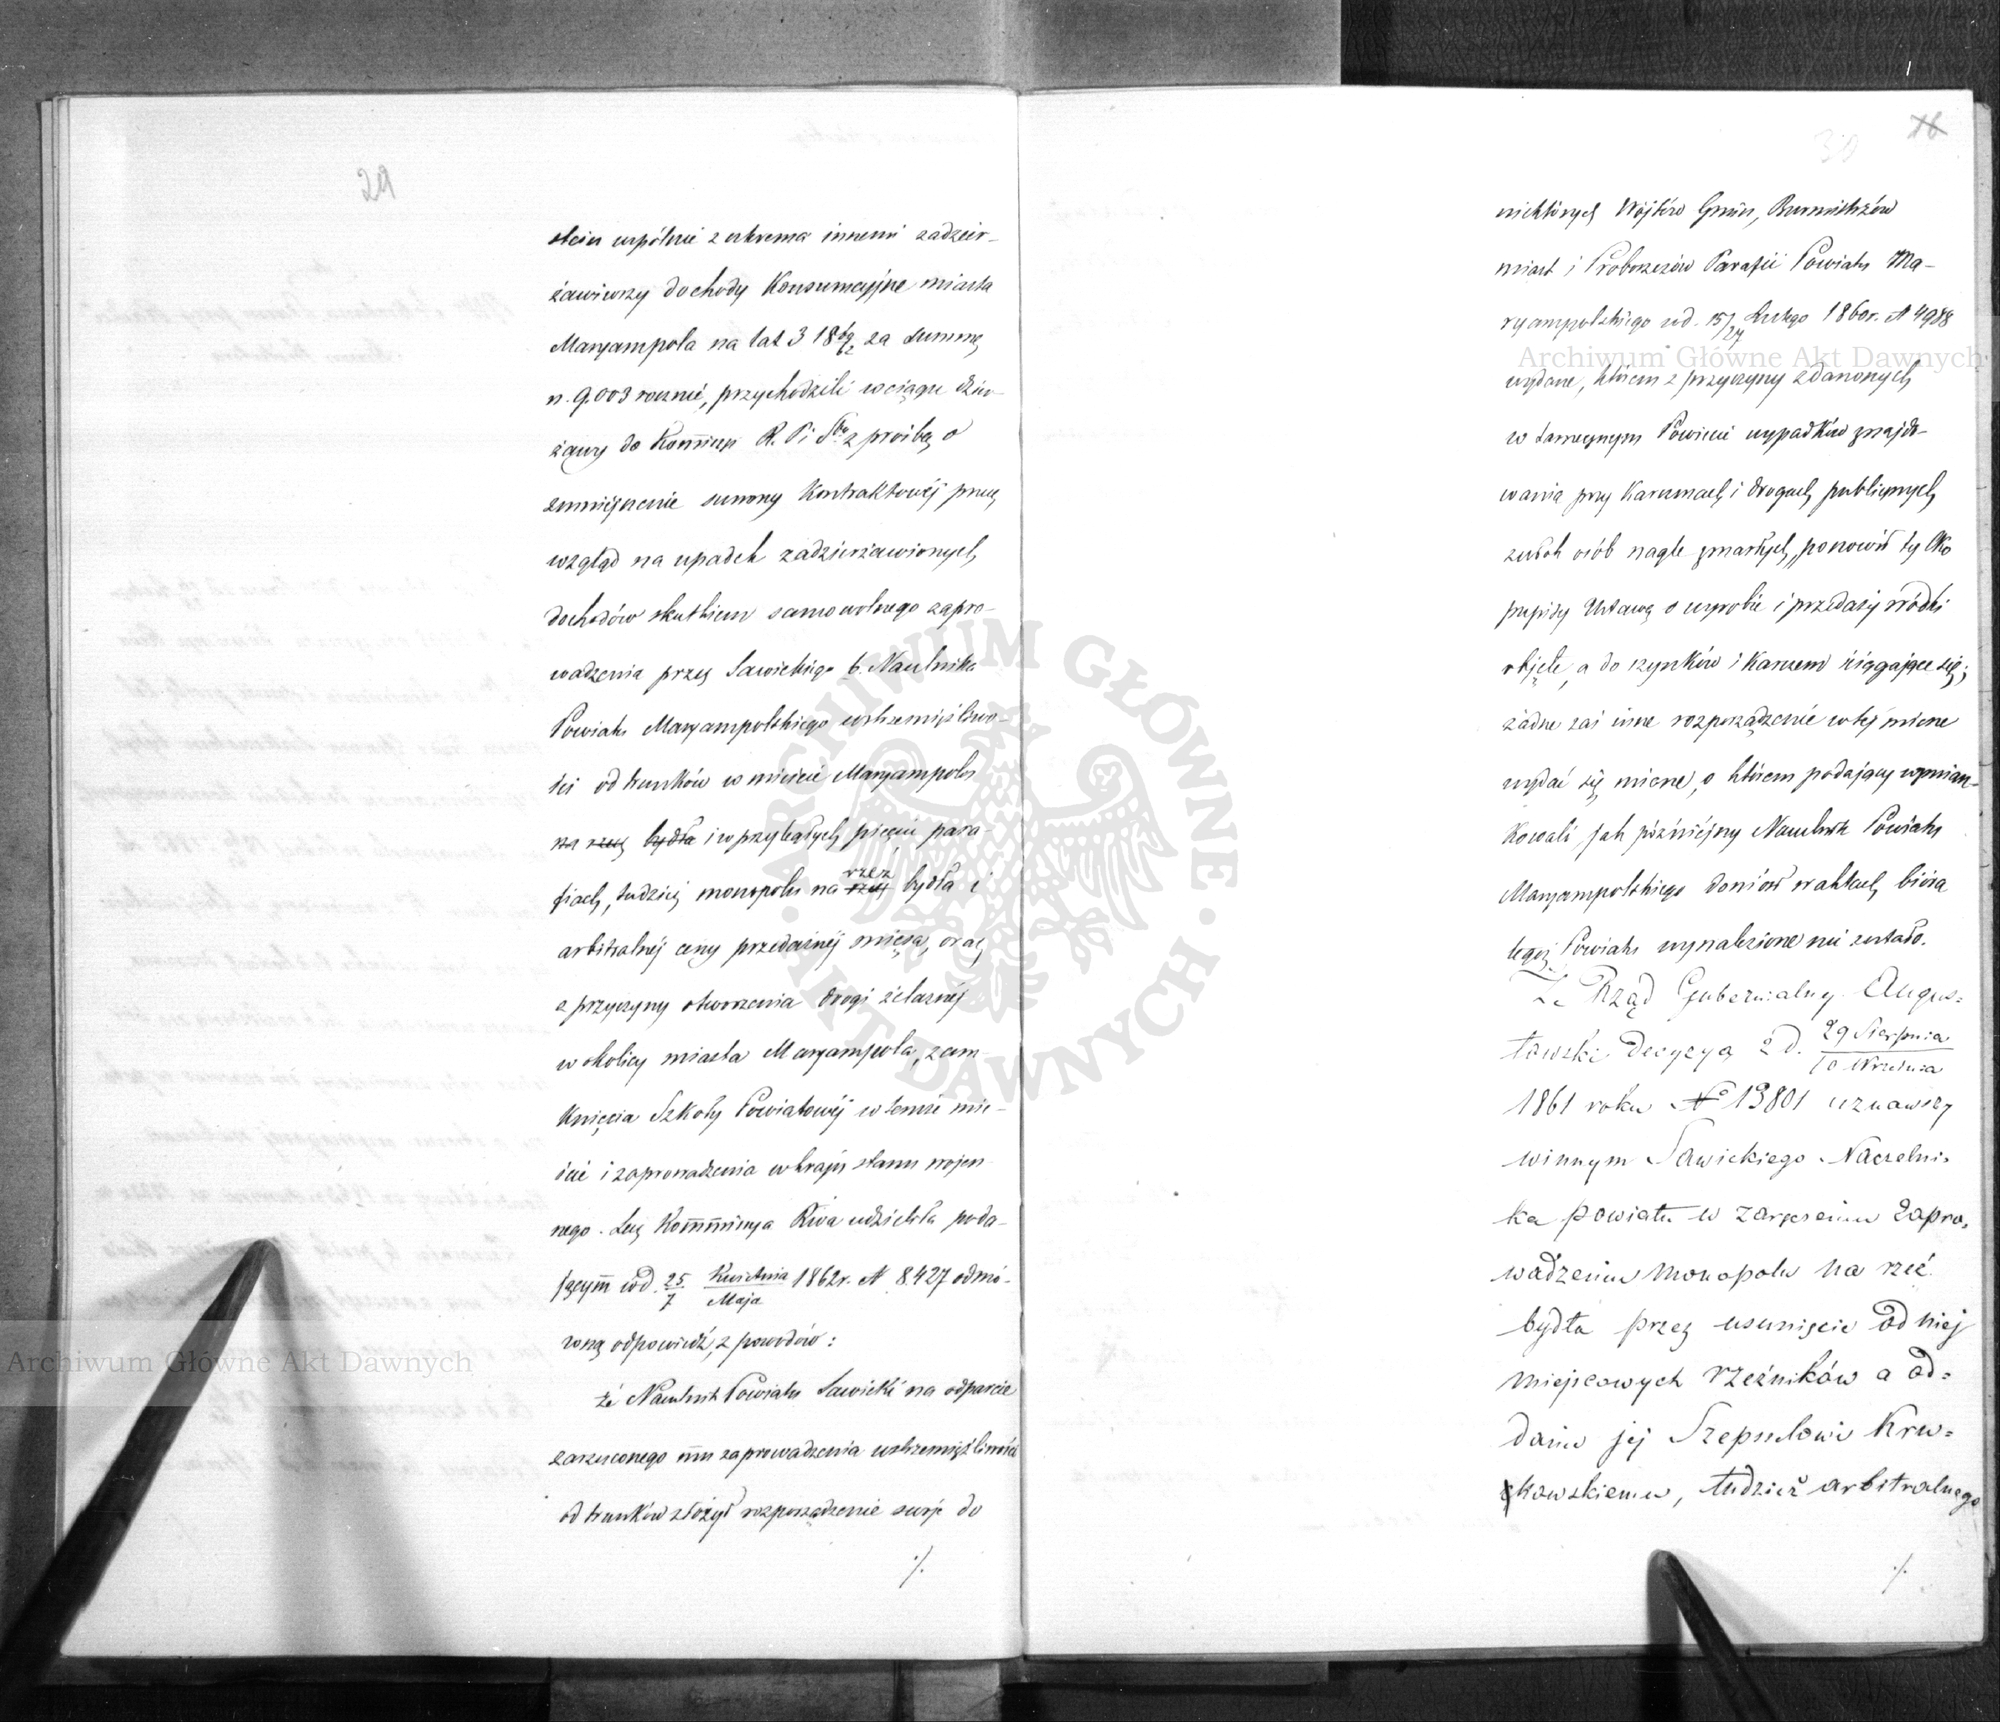 29
stein wspólnie z dwoma innemi zadzier-
żawiwszy dochody Konsumcyjne miasta
Maryampola na lat 3 18 60/62 za summę
r. 9.003 rocznie, przychodzili w ciągu dzier-
żawy do Kommissyi R. P. i Sbu z proźbą o
zmniejszenie summy Kontraktowéj przez
wzgląd na upadek zadzierżawionych
dochodów skutkiem samowolnego zapro-
wadzenia przez Sawickiego b. Naczelnika
Powiatu Maryampolskiego wstrzemięźliwo-
ści od trunków w mieście Maryampolu
na rzeź bydła i w przyległych pięciu para-
fiach, tudzież monopolu na rzeź bydła i
arbitralnéj ceny przedażnéj mięsa, oraz
z przyczyny otworzenia drogi żelaznéj
w okolicy miasta Maryampola, zam-
knięcia Szkoły Powiatowéj w temże mie-
ście i zaprowadzenia w kraju stanu wojen-
nego. Lecz Kommissya Rwa udzieliła poda-
jącym w d. 25/7 Kwietnia/Maja 1862 r. N 8.427 odmo-
wną odpowiedź, z powodów:
że Naczelnik Powiatu Sawicki na odparcie
zarzuconego mu zaprowadzenia wstrzemięźliwości
od trunków złożył rozporządzenie swoje do
./.
30
16
niektórych Wójtów Gmin, Burmistrzów
miast i Proboszczów Parafii Powiatu Ma-
ryampolskiego w d. 15/27 Lutego 1860 r. N 4988
wydane, którem z przyczyny zdarzonych
w tamecznym Powiecie wypadków znajdo-
wania przy Karczmach i drogach publicznych
zwłok osób nagle zmarłych, ponowił tylko
przepisy Ustawą o wyrobie i przedaży wódki
objęte, a do szynków i karczem ściągające się;
żadne zaś inne rozporządzenie w tej mierze
wydać się miane, o którem podający wzmian-
kowali jak późniejszy Naczelnik Powiatu
Maryampolskiego doniósł w aktach biura
tegoż Powiatu wynalezione nie zostało.
Że Rząd Gubernialny Augus=
towski decyzyą z d. 29 Sierpnia/10 Września
1861 roku № 13801 uznawszy
winnym Sawickiego Naczelni=
ka powiatu w zarzceniu zapro=
wadzenia monopolu na rzeź
bydła przez usunięcie od niej
miejscowych rzeźników a od=
daniu jej Szepselowi Kru=
kowskiemu, tudzież arbitralnego
./.
Archiwum Główne Akt Dawnych
Archiwum Główne Akt Dawnych
ARCHIWUM GŁÓWNE AKT DAWNYCH